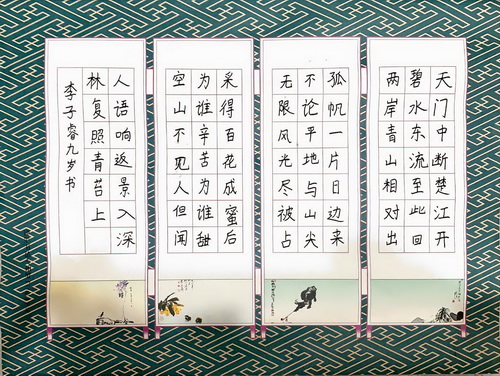 天门中断楚江开
碧水东流至此回
两岸青山相对出
孤帆一片日边来
不论平地与山尖
无限风光尽被占
采得百花成蜜后
为谁辛苦为谁甜
空山不见人但闻
人语响返景入深
林复照青苔上
李子睿九岁书